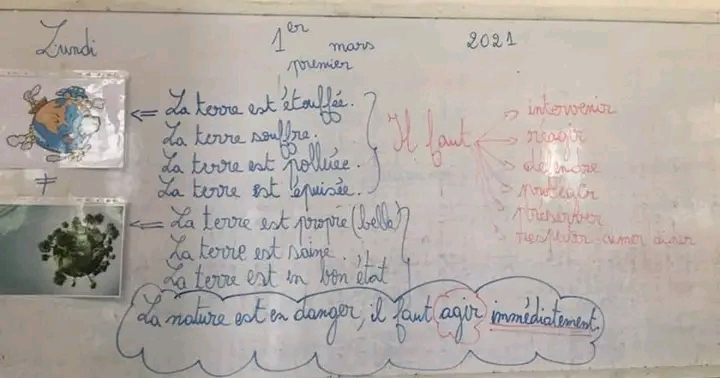 Lundi 1er mars 2021
premier
La terre est étouffée.
La terre souffre.
La terre est polluée.
La terre est épuisée.
≠
Il faut
intervenir
réagir
défendre
protéger
préserver
La terre est propre (belle)
La terre est saine.
La terre est en bon état
La nature est en danger, il faut agir immédiatement.